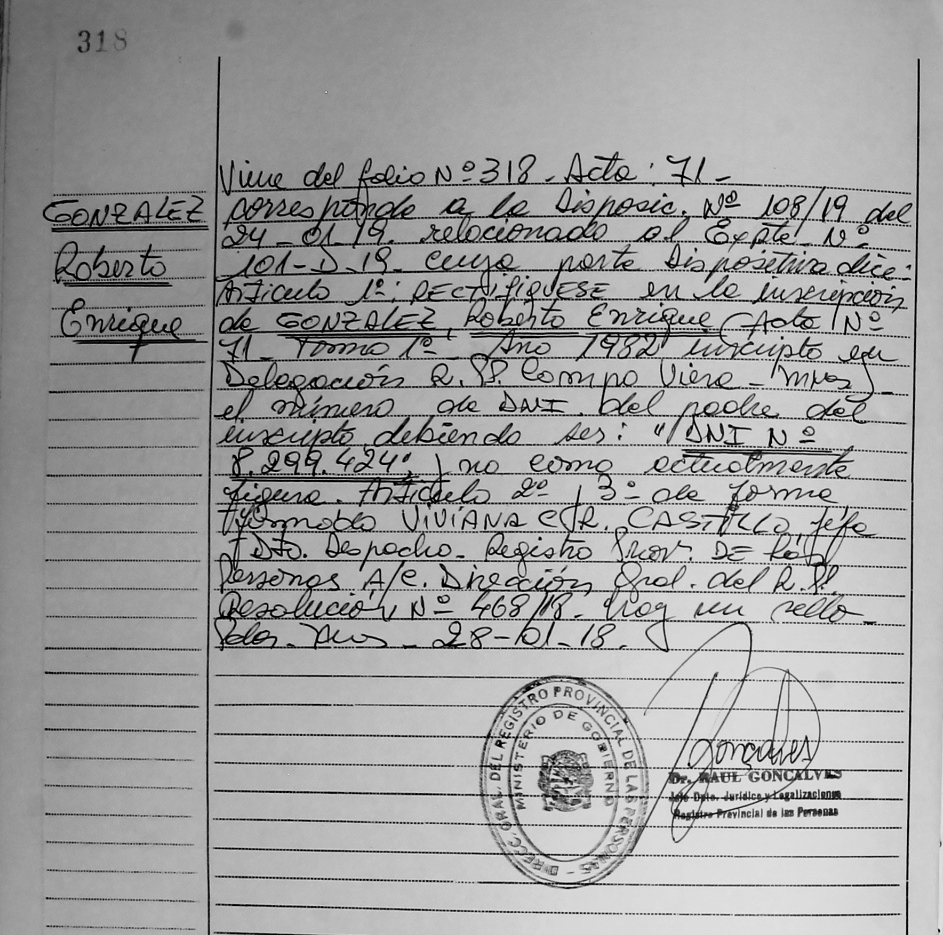 318
GONZALEZ
Roberto
Enrique
Viene del folio Nº 318 - Acta: 71 -
corresponde a la Disposic. Nº 108/19 del
24-01-19. relacionado al Expte Nº
101-D-19- cuya parte Dispositiva dice:
Articulo 1º: RECTIFIQUESE en la inscripción
de GONZALEZ, Roberto Enrique (Acta Nº
71- Tomo 1º - Año 1982 inscripto en
Delegación R.PP. Campo Viera - Mnes)
el número de DNI del padre del
inscripto debiendo ser: "DNI Nº
8.299.424" y no como actualmente
figura. Articulo 2º y 3º de forma
Firmado VIVIANA CASTILLO, Jefa
Dto. Despacho- Registro Prov. DE las
Personas A/C. Dirección Gral. del R.PP.
Resolución Nº 468/18. hay un sello
Pdas. Mnes - 28-01-18.
DIRECC. GRAL. DEL REGISTRO PROVINCIAL DE LAS PERSONAS -
MINISTERIO DE GOBIERNO
Gonçalves
Dr. RAUL GONCALVES
Jefe Dpto. Jurídico y Legalizaciones
Registro Provincial de las Personas